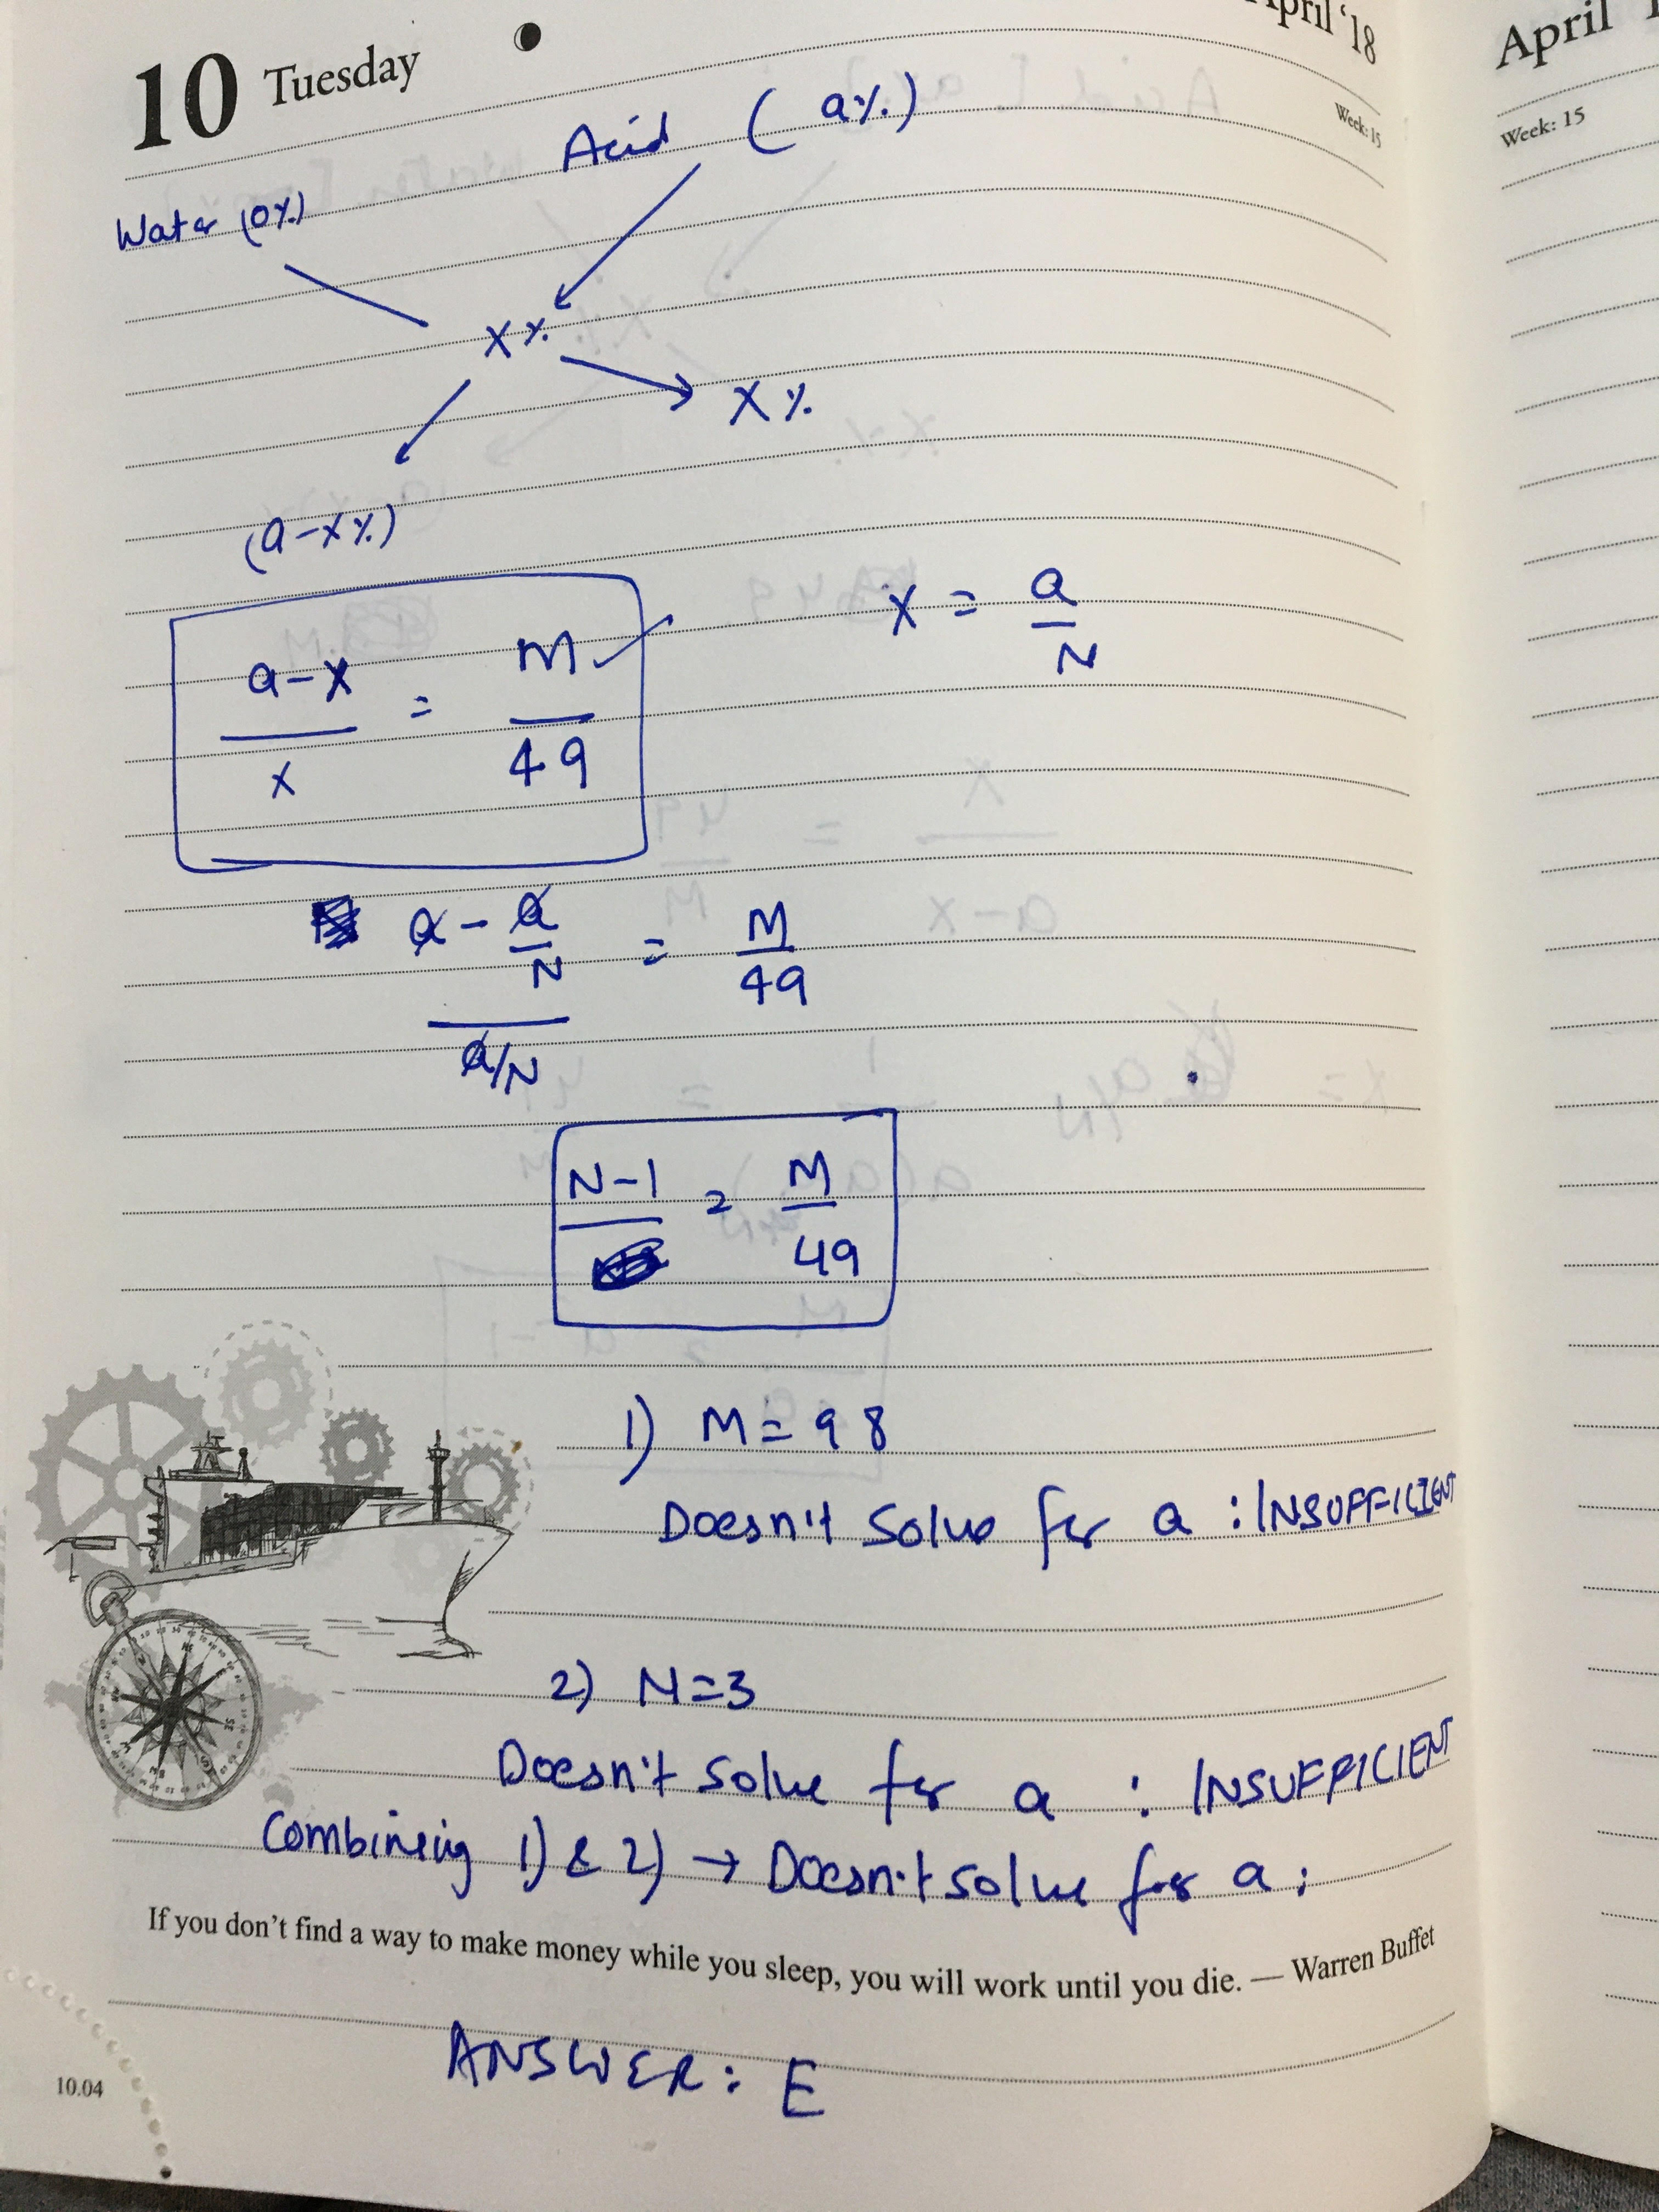 10 Tuesday
April '18
Week: 15
April
Week: 15
Acid (a%)
Water (0%)
X%
X%
(a-x%)
a-x / x = M / 49
x = a / N
a - a/N / a/N = M / 49
N-1 = M / 49
1) M = 98
Doesn't solve for a : INSUFFICIENT
2) N=3
Doesn't solve for a : INSUFFICIENT
Combining 1) & 2) → Doesn't solve for a ;
If you don't find a way to make money while you sleep, you will work until you die. — Warren Buffet
ANSWER: E
10.04